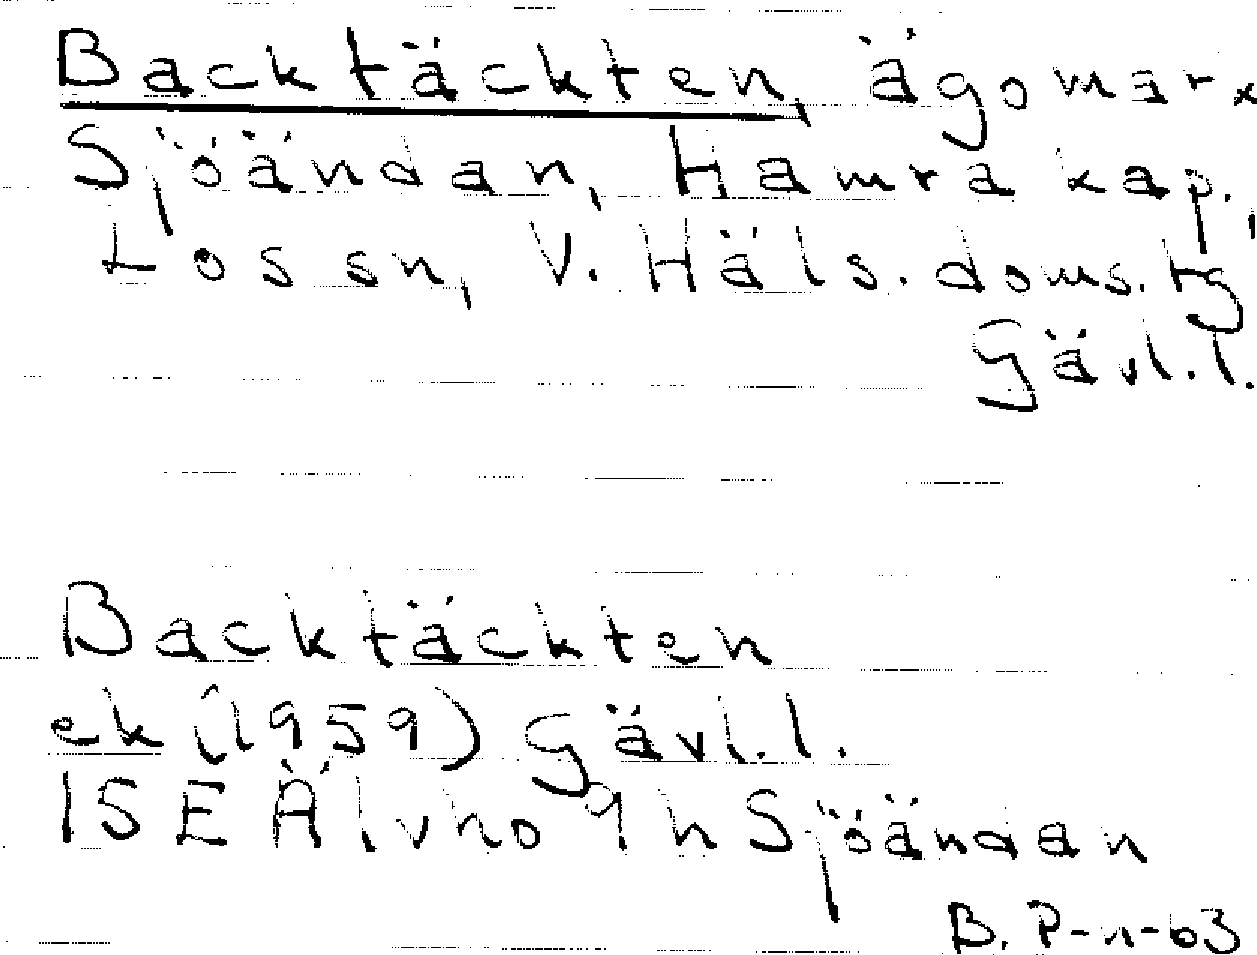 Backtäckten, ägomark
Sjöändan, Hamra kap.,
Lossn, V. Häls. doms.tg
Gävl.l.
Backtäckten
ek (1959) Gävl.l.
15E Älvho 9h Sjöändan
B. P-n-63